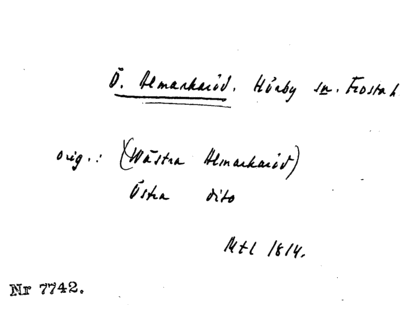 Ö. Almarkaröd. Hörby sn. Frosta h
orig.: (Wästra Almarkaröd)
Östra dito
Mtl 1814.
Nr 7742.